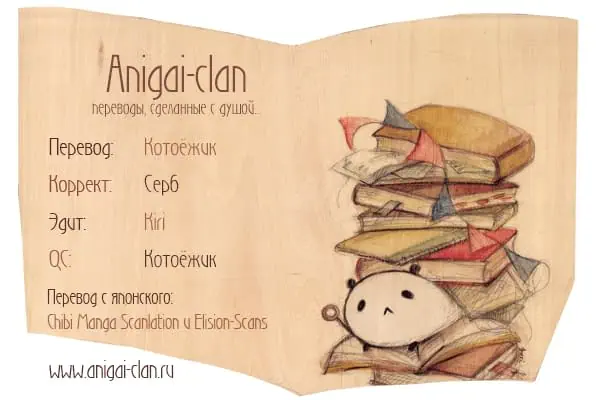 Anigai-clan
переводы, сделанные с душой...
Перевод: Котоёжик
Коррект: Серб
Эдит: Kiri
QC: Котоёжик
Перевод с японского:
Chibi Manga Scanlation и Elision-Scans
www.anigai-clan.ru